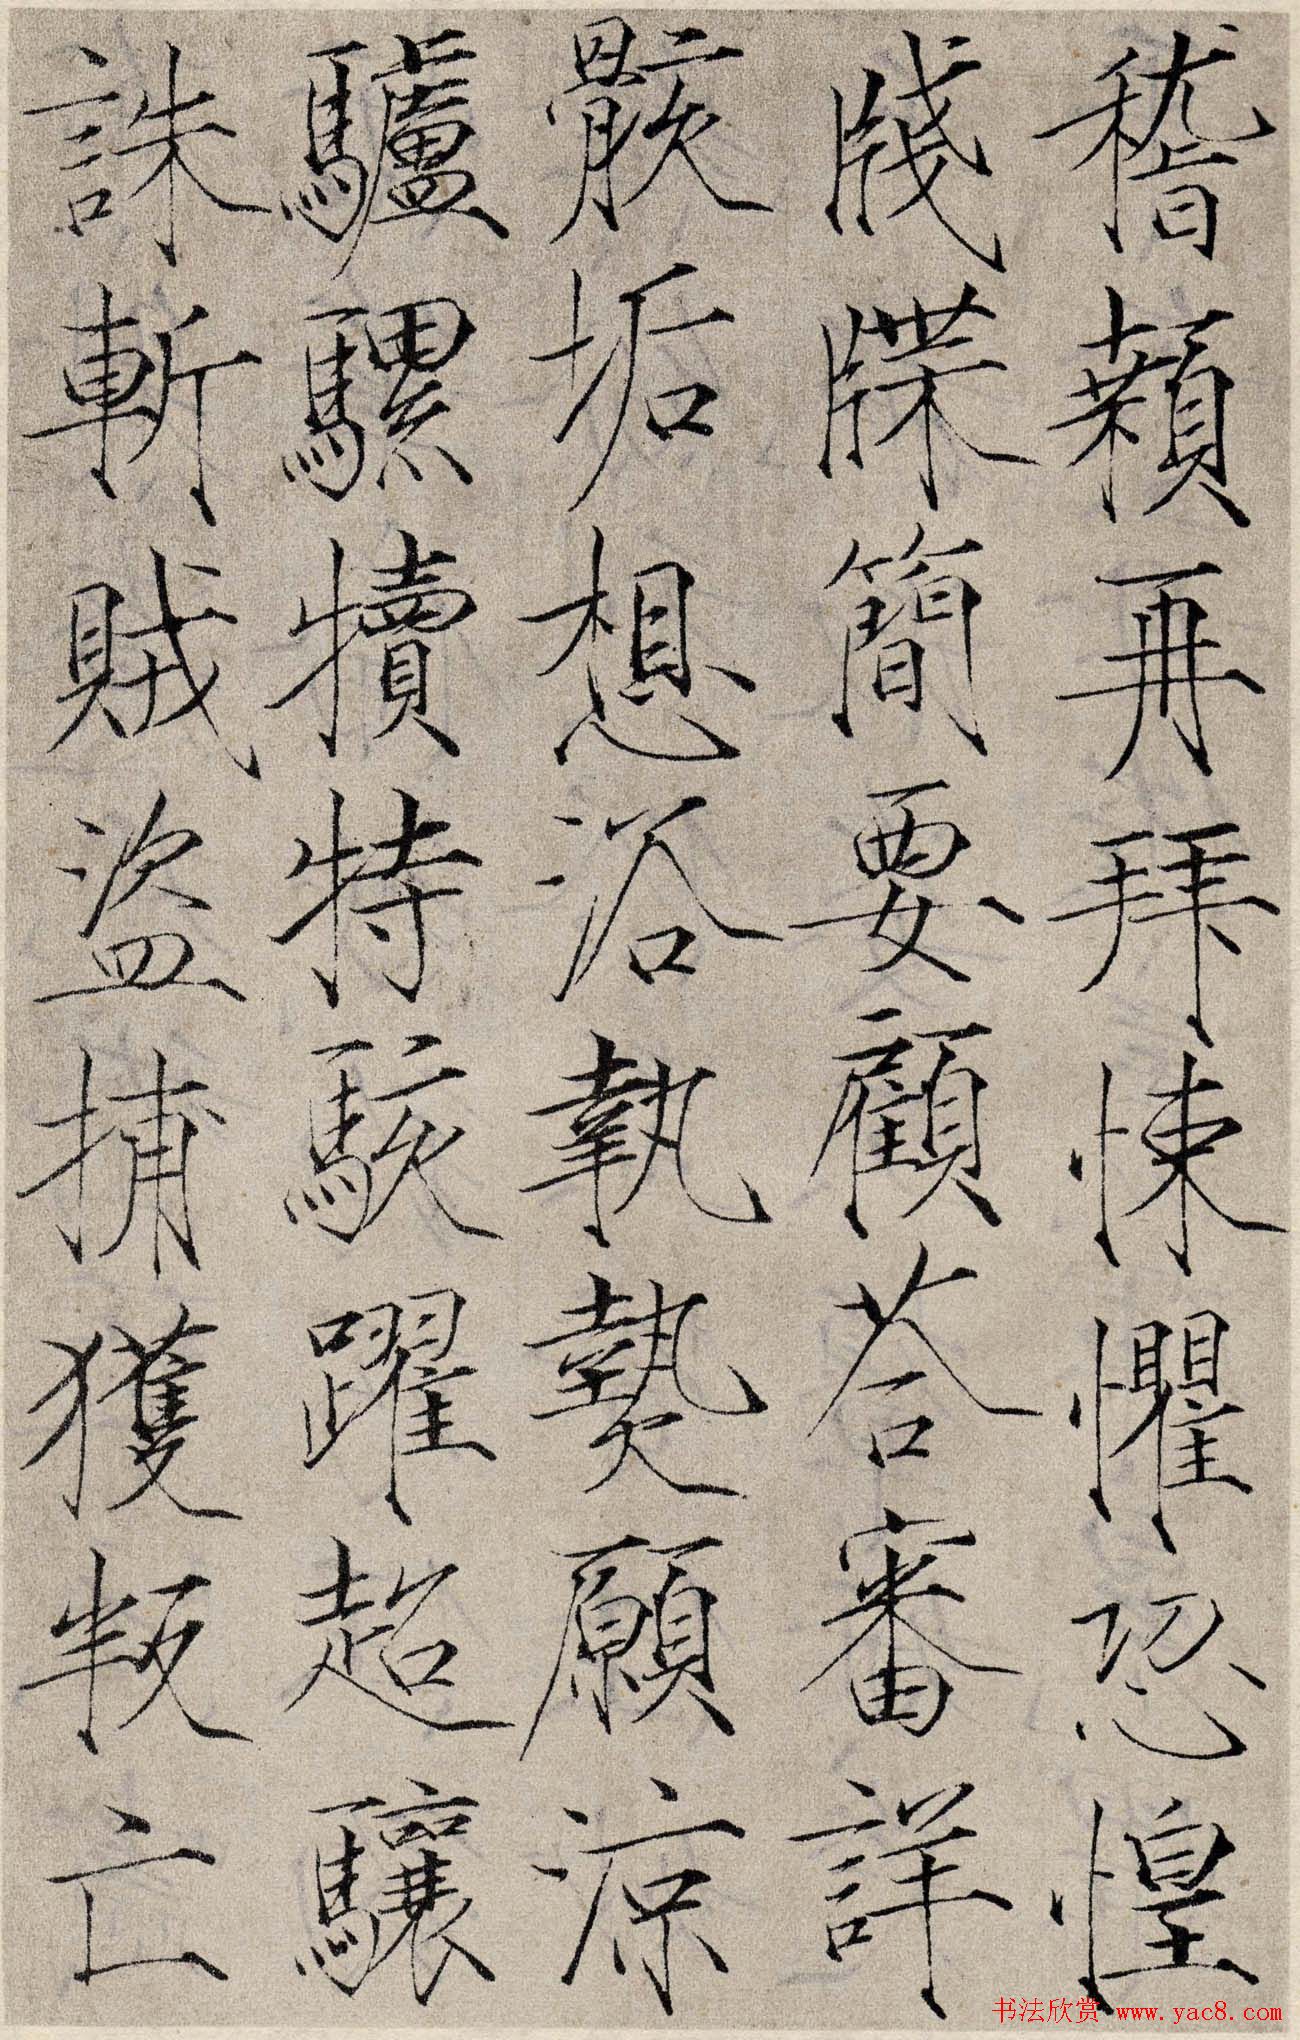 稽顙再拜悚懼恐惶
牋牒簡要顧荅審詳
骸垢想浴執熱願涼
驢騾犢特駭躍超驤
誅斬賊盜捕獲叛亡
书法欣赏 www.yac8.com